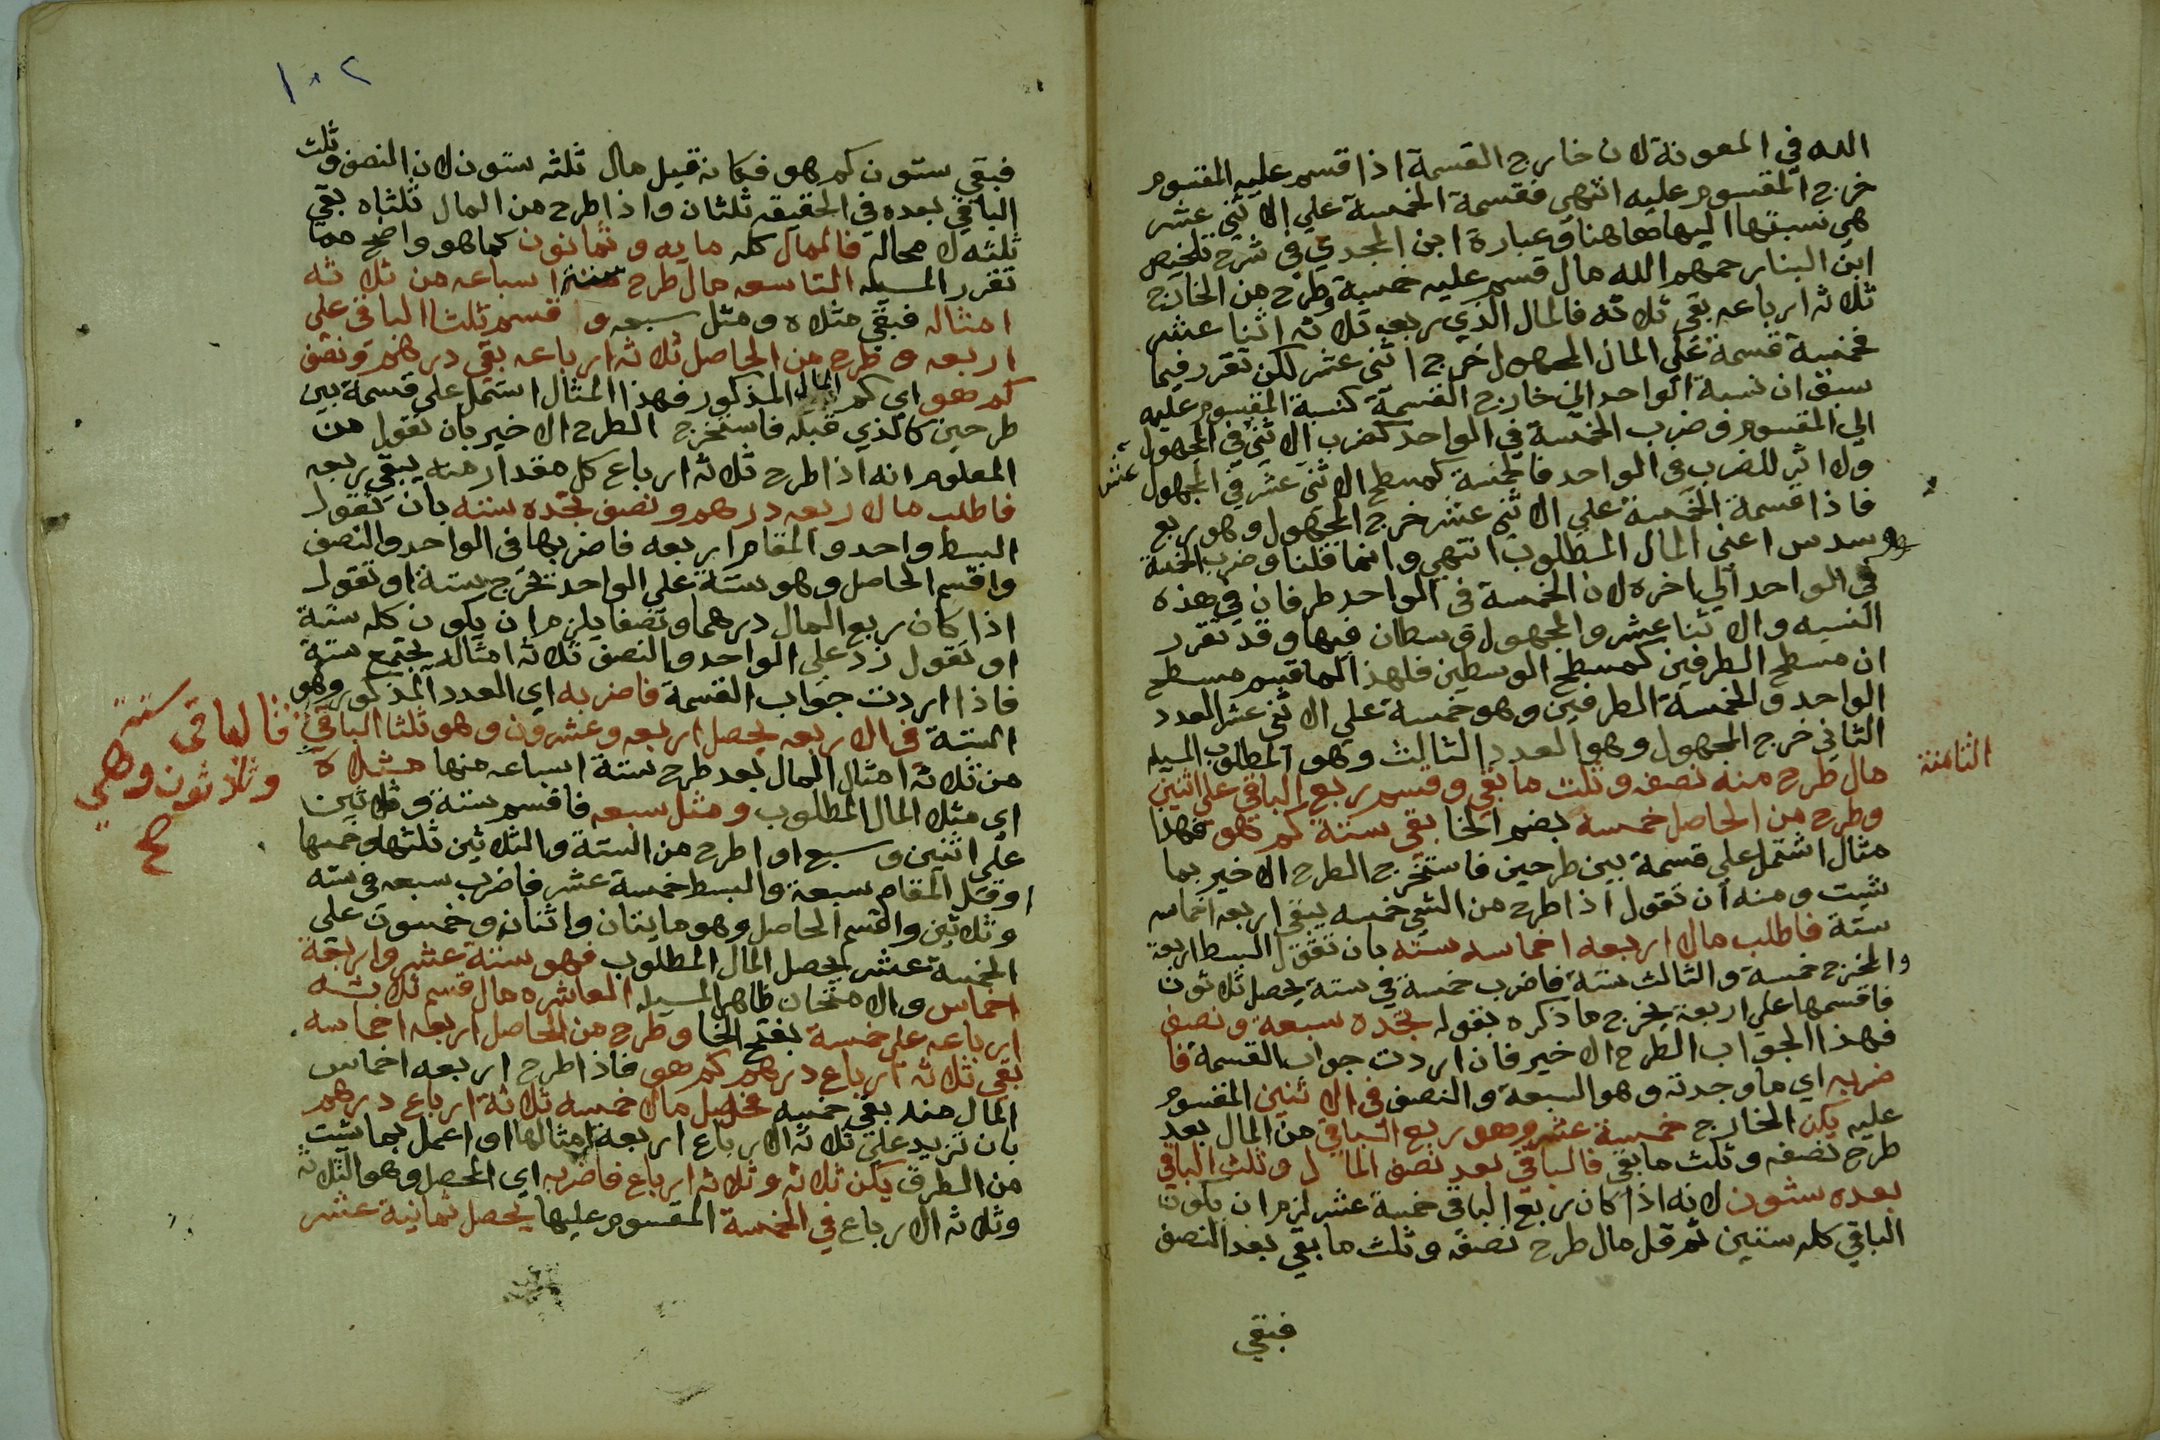 الله في المعونة لان خارج القسمة اذا قسم عليه المقسوم
خرج المقسوم عليه انتهي فقسمة الخمسة علي الاثني عشر
هي نسبتها اليها هاهنا وعبارة ابن المجدي في شرح تلخيص
ابن البنا رحمهم الله مال قسم عليه خمسة وطرح من الخارج
ثلاثة ارباعه بقي ثلاثه فالمال الذي ربعه ثلاثه اثنا عشر
فخمسة قسمة علي المال المجهول اخرج اثني عشر لكن تقرر فيما
سبق ان نسبة الواحد الي خارج القسمة كنسبة المقسوم عليه
الي المقسوم فضرب الخمسة في الواحد كضرب الاثني في المجهول
عشر
ولا اثر للضرب في الواحد فالخمسة كمسطح الاثني عشر في المجهول
فاذا قسمة الخمسة علي الاثني عشر خرج المجهول وهو ربع
وسدس اعني المال المطلوب انتهي وانما قلنا وضرب الخمسة
في الواحد الي اخره لان الخمسة في الواحد طرفان في هذه
النسبه والاثنا عشر والمجهول وسطان فيها وقد تقرر
ان مسطح الطرفين كمسطح الوسطين فلهذا لما قسم مسطح
الواحد والخمسة الطرفين وهو خمسة علي الاثني عشر العدد
الثاني خرج المجهول وهو العدد الثالث وهو المطلوب المسيله
الثامنة
مال طرح منه نصفه وثلث ما بقي وقسم ربع الباقي علي اثنين
وطرح من الحاصل خمسه بضم الخا بقي ستة كم هو فهذا
مثال اشتمل علي قسمة بين طرحين فاستخرج الطرح الاخير بما
شيت ومنه ان تقول اذا طرح من الشي خمسه يبقي اربعه اخماسه
ستة فاطلب مالا اربعه اخماسه سته بان تقول البسط اربعة
والمخرج خمسة والثالث ستة فاضرب خمسة في ستة يحصل ثلاثون
فاقسمها علي اربعة يخرج ما ذكره بقوله تجده سبعة ونصف
فهذا الجواب الطرح الاخير فان اردت جواب القسمة فا
ضربه اي ما وجدته وهو السبعة والنصف في الاثنين المقسوم
عليه يكن الخارج خمسة عشر وهو ربع الباقي من المال بعد
طرح نصفه وثلث ما بقي فالباقي بعد نصف المال وثلث الباقي
بعده ستون لانه اذا كان ربع الباقي خمسة عشر لزم ان يكون
الباقي كله ستين ثم قل مال طرح نصفه وثلث ما بقي بعد النصف
فبقي
١٠٢
فبقي ستون كم هو فكانه قيل مال ثلثه ستون لان النصف وثلث
الباقي بعده في الحقيقه ثلثان واذا طرح من المال ثلثاه بقي
ثلثه لا محاله فالمال كله مايه وثمانون كما هو واضح مما
تقرر المسيله التاسعه مال طرح ستة اسباعه من ثلاثه
امثاله فبقي مثلاه ومثل سبعه وقسم ثلثا الباقي علي
اربعه وطرح من الحاصل ثلاثه ارباعه بقي درهم ونصف
كم هو اي كم المال المذكور فهذا المثال اشتمل علي قسمة بين
طرحين كالذي قبله فاستخرج الطرح الاخير بان تقول من
المعلوم انه اذا طرح ثلاثه ارباع كل مقدار منه يبقي ربعه
فاطلب مالا ربعه درهم ونصف تجده سته بان تقول
البسط واحد والمقام اربعه فاضربها في الواحد والنصف
واقسم الحاصل وهو ستة علي الواحد تخرج ستة او تقول
اذا كان ربع المال درهما ونصفا يلزم ان يكون كله ستة
او تقول زد علي الواحد والنصف ثلاثه امثاله يجتمع ستة
فاذا اردت جواب القسمة فاضربه اي العدد المذكور وهو
الستة في الاربعه يحصل اربعه وعشرون وهو ثلثا الباقي
فالباقي ستة
وثلاثون وهي
صح
من ثلاثة امثال المال بعد طرح ستة اسباعه منها مثلاه
اي مثلا المال المطلوب ومثل سبعه فاقسم ستة وثلاثين
علي اثنين وسبع او اطرح من الستة والثلاثين ثلثها وخمسها
او قل المقام سبعة والبسط خمسة عشر فاضرب سبعه في سته
وثلاثين واقسم الحاصل وهو مايتان واثنان وخمسون علي
الخمسة عشر يحصل المال المطلوب فهو ستة عشر واربعة
اخماس والامتحان ظاهر المسيله العاشره مال قسم ثلاثه
ارباعه علي خمسة بفتح الخا وطرح من الحاصل اربعه اخماسه
بقي ثلاثه ارباع درهم كم هو فاذا طرح اربعه اخماس
المال منه بقي خمسه فحصل مالا خمسه ثلاثة ارباع درهم
بان تزيد علي ثلاثه الارباع اربعة امثالها او اعمل بما شيت
من الطرق يكن ثلاثه وثلاثه ارباع فاضربه اي المحصل وهو الثلاثه
وثلاثه الارباع في الخمسة المقسوم عليها يحصل ثمانية عشر